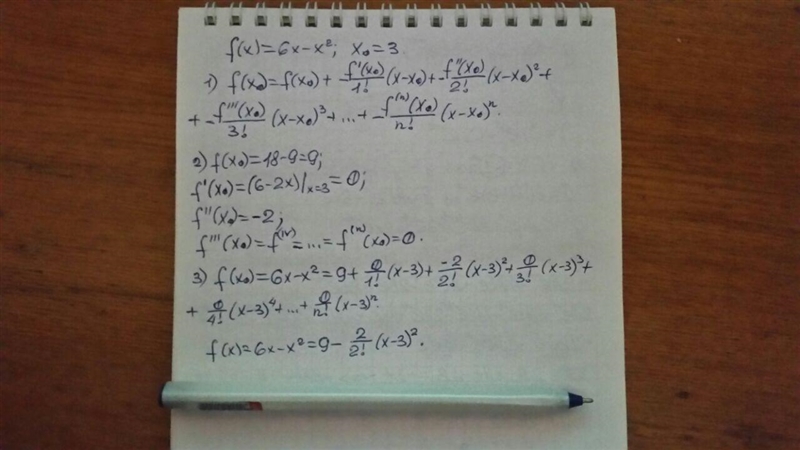 f(x)=6x-x²; x₀=3
1) f(x₀)=f(x₀)+ f'(x₀)/1! (x-x₀)+ f''(x₀)/2! (x-x₀)²+
+ f'''(x₀)/3! (x-x₀)³+...+ f⁽ⁿ⁾(x₀)/n! (x-x₀)ⁿ.
2) f(x₀)=18-9=9;
f'(x₀)=(6-2x)|ₓ₌₃=0;
f''(x₀)=-2;
f'''(x₀)=f⁽ᴵⱽ⁾=...=f⁽ⁿ⁾(x₀)=0.
3) f(x₀)=6x-x²=9+ 0/1! (x-3)+ -2/2! (x-3)²+ 0/3! (x-3)³+
+ 0/4! (x-3)⁴+...+ 0/n! (x-3)ⁿ.
f(x)=6x-x²=9- 2/2! (x-3)².